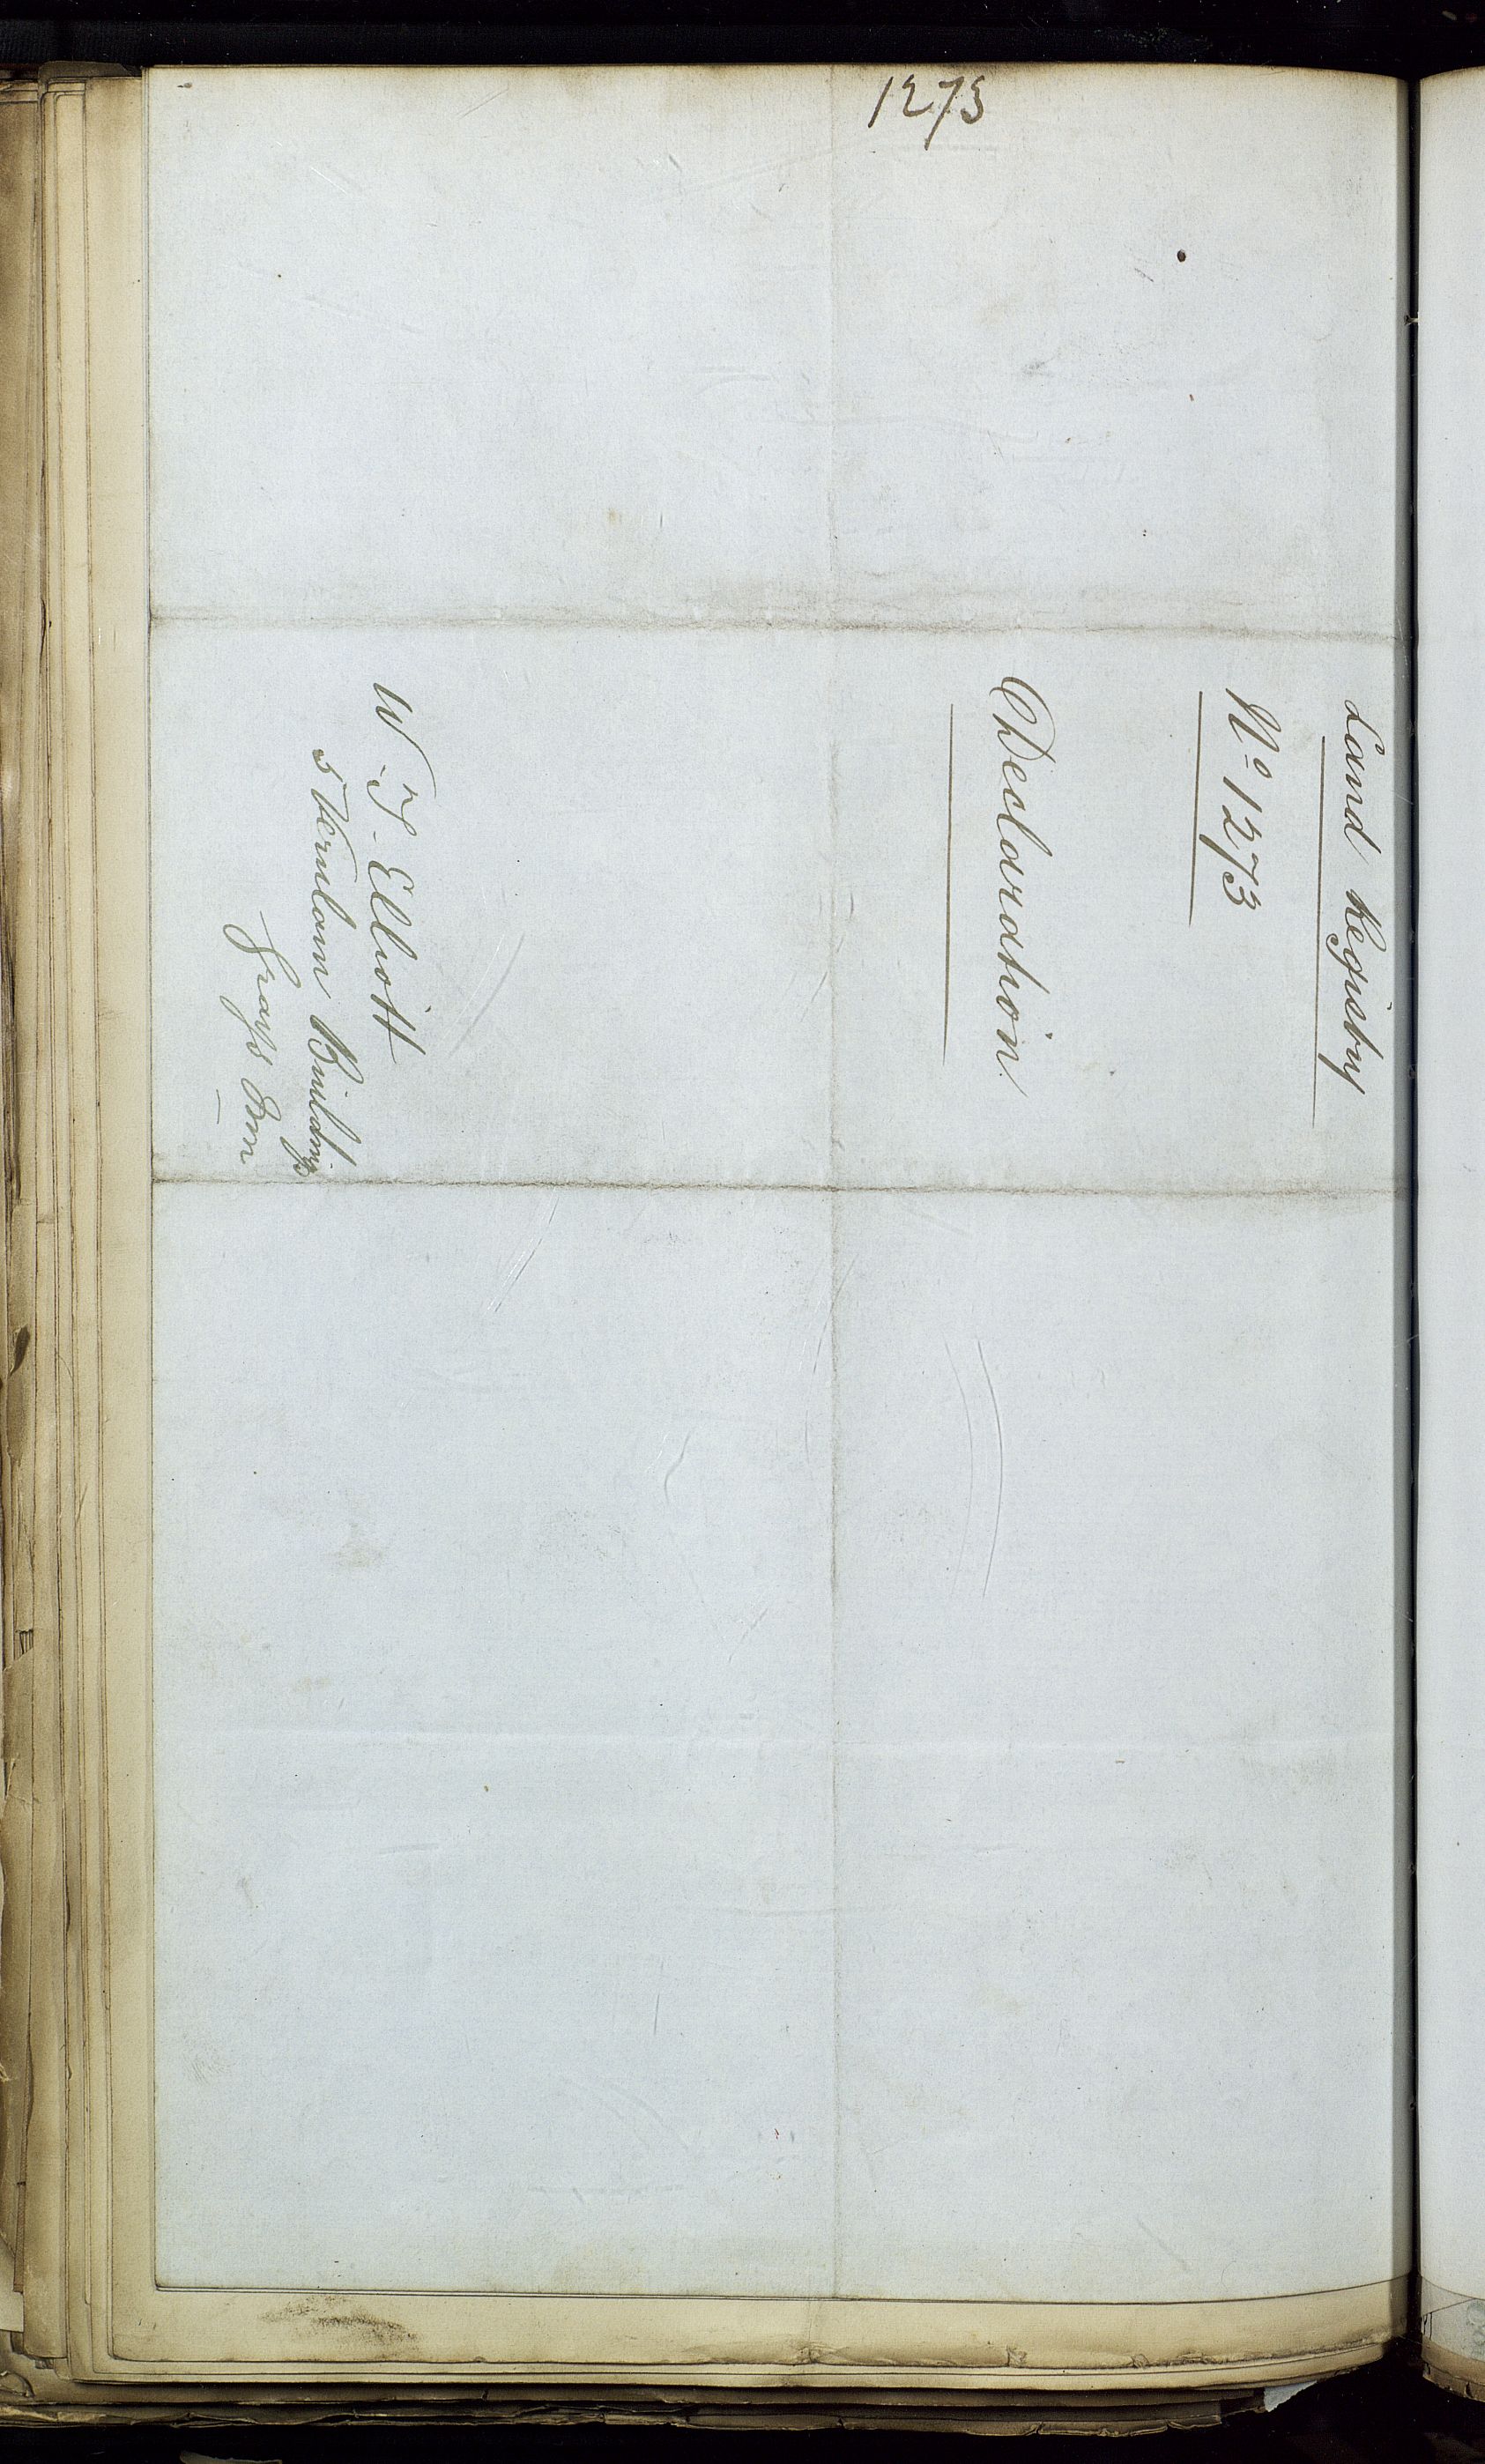 1273
Land Registry
No 1273
Declaration
W. T. Elliott
5 Verulam Buildings
Grays Inn